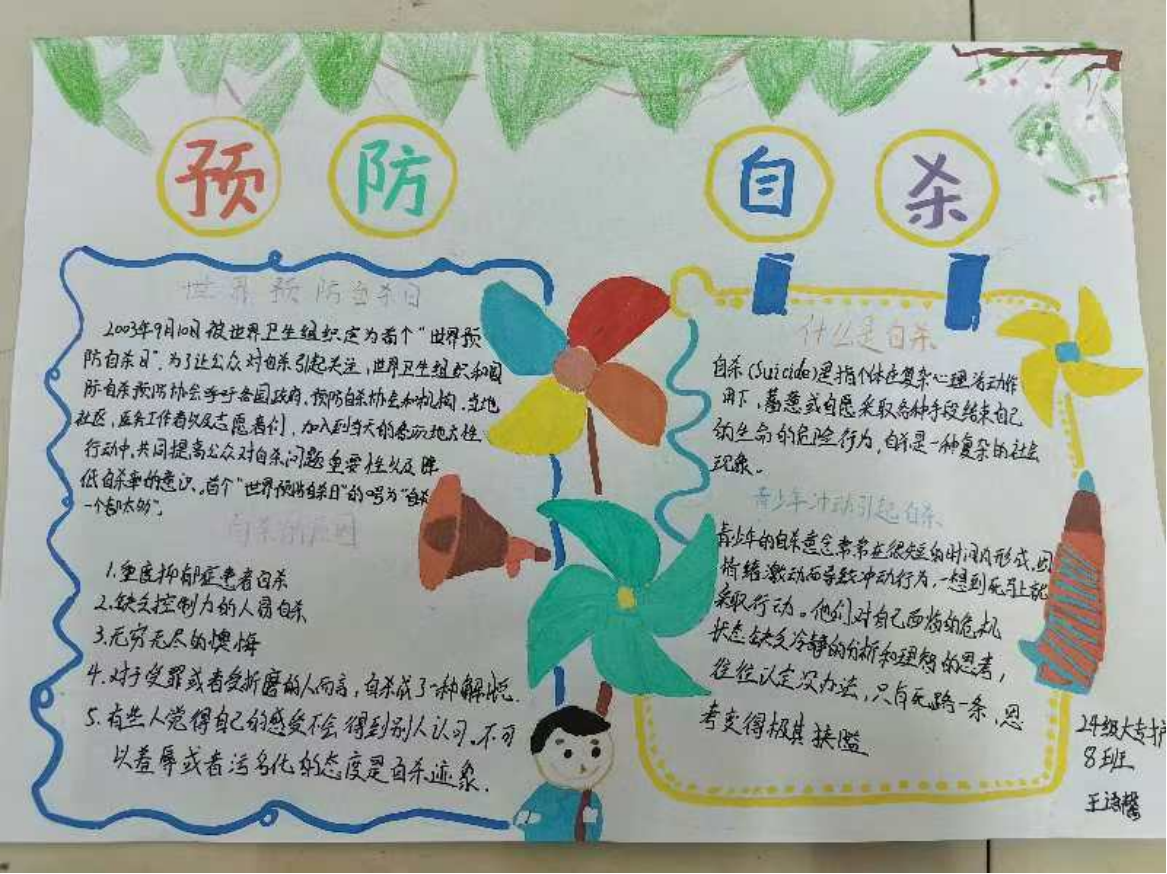 预防自杀
世界预防自杀日
2003年9月10日被世界卫生组织定为首个“世界预
防自杀日”。为了让公众对自杀引起关注,世界卫生组织和国
际自杀预防协会呼吁各国政府、预防自杀协会和机构、当地
社区、医务工作者以及志愿者们,加入到当天的各项地方性
行动中,共同提高公众对自杀问题重要性以及降
低自杀率的意识。首个“世界预防自杀日”的口号为“自杀
一个都太多”。
自杀的原因
1.重度抑郁症患者自杀
2.缺乏控制力的人易自杀
3.无穷无尽的懊悔
4.对于受罪或者受折磨的人而言,自杀成了一种解脱.
5.有些人觉得自己的感受不会得到别人认可。不可
以羞辱或者污名化的态度是自杀迹象.
什么是自杀
自杀(Suicide)是指个体在复杂心理活动作
用下,蓄意或自愿采取各种手段结束自己
的生命的危险行为,自杀是一种复杂的社会
现象。
青少年冲动引起自杀
青少年的自杀意念常常在很短的时间内形成,因
情绪激动而导致冲动行为,一想到死马上就
采取行动。他们对自己面临的危机
状态缺乏冷静的分析和理智的思考,
往往认定没办法,只有死路一条,思
考变得极其狭隘
24级大专护
8班
王语馨